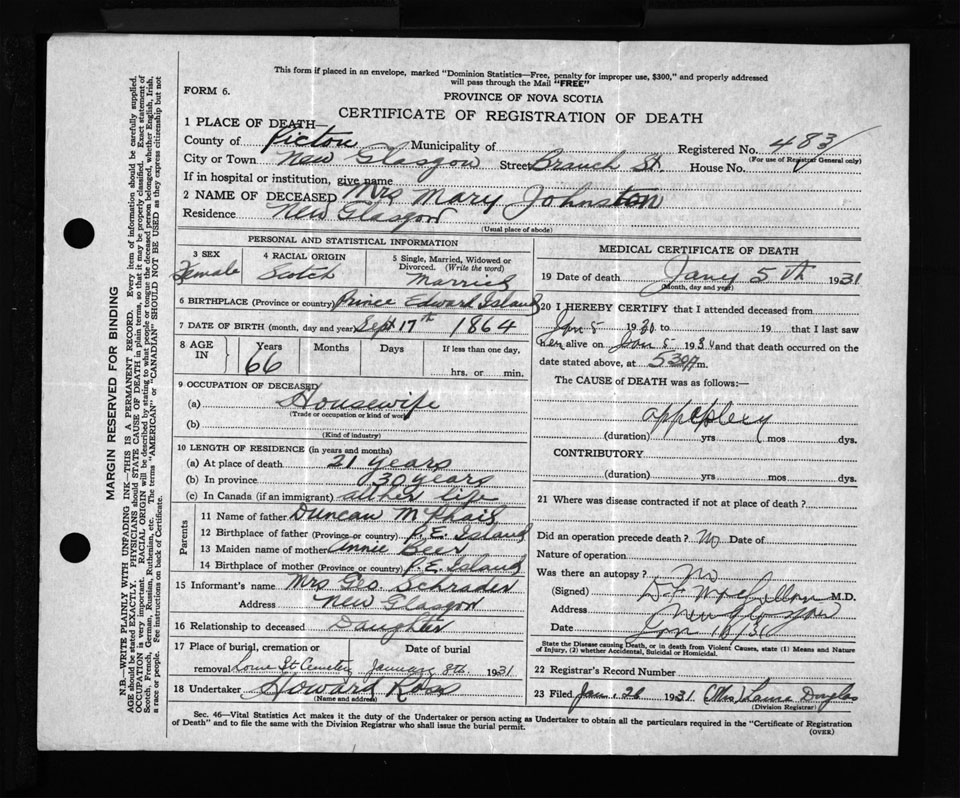 This form if placed in an envelope, marked "Dominion Statistics—Free, penalty for improper use, $300," and properly addressed
will pass through the Mail "FREE"
FORM 6.
PROVINCE OF NOVA SCOTIA
CERTIFICATE OF REGISTRATION OF DEATH
1 PLACE OF DEATH—
County of Pictou Municipality of Registered No. 483
(For use of Registrar General only)
City or Town New Glasgow Street Branch St. House No.
If in hospital or institution, give name
2 NAME OF DECEASED Mrs Mary Johnston
Residence New Glasgow
(Usual place of abode)
PERSONAL AND STATISTICAL INFORMATION
3 SEX Female
4 RACIAL ORIGIN Scotch
5 Single, Married, Widowed or
Divorced. (Write the word)
Married
6 BIRTHPLACE (Province or country) Prince Edward Island
7 DATE OF BIRTH (month, day and year) Sept 17th 1864
8 AGE IN Years Months Days If less than one day,
66 hrs. or min.
9 OCCUPATION OF DECEASED
(a) Housewife
(Trade or occupation or kind of work)
(b)
(Kind of industry)
10 LENGTH OF RESIDENCE (in years and months)
(a) At place of death 21 years
(b) In province 30 years
(c) In Canada (if an immigrant) all her life
Parents
11 Name of father Duncan McPhail
12 Birthplace of father (Province or country) P. E. Island
13 Maiden name of mother Annie Beer
14 Birthplace of mother (Province or country) P. E. Island
15 Informant's name Mrs Geo. Schrader
Address New Glasgow
16 Relationship to deceased Daughter
17 Place of burial, cremation or Date of burial
removal St Cemetery January 8th 1931
18 Undertaker Howard Ross
(Name and address)
MEDICAL CERTIFICATE OF DEATH
19 Date of death Jany 5th 1931
(Month, day and year)
20 I HEREBY CERTIFY that I attended deceased from
Jan 5 19 to 19 that I last saw
her alive on Jan 5 193 and that death occurred on the
date stated above, at 530 p m.
The CAUSE OF DEATH was as follows:—
appoplexy
(duration) yrs mos dys.
CONTRIBUTORY
(duration) yrs mos dys.
21 Where was disease contracted if not at place of death?
Did an operation precede death? No Date of
Nature of operation
Was there an autopsy? No
(Signed) M.D.
Address New Glasgow
Date Jan 10/31
State the Disease causing Death, or in death from Violent Causes, state (1) Means and Nature
of Injury, (2) whether Accidental, Suicidal or Homicidal.
22 Registrar's Record Number
23 Filed Jan. 26 1931 (Mrs) Laura Douglas
(Division Registrar)
Sec. 46—Vital Statistics Act makes it the duty of the Undertaker or person acting as Undertaker to obtain all the particulars required in the "Certificate of Registration
of Death" and to file the same with the Division Registrar who shall issue the burial permit.
(OVER)
MARGIN RESERVED FOR BINDING
N.B.—WRITE PLAINLY WITH UNFADING INK—THIS IS A PERMANENT RECORD. Every item of information should be carefully supplied.
AGE should be stated EXACTLY. PHYSICIANS should STATE CAUSE OF DEATH in plain terms, so that it may be properly classified. Exact statement of
OCCUPATION is very important. RACIAL ORIGIN will be described by stating to what people or tongue the deceased person belonged, whether English, Irish,
Scotch, French, German, Russian, Ruthenian, etc. The terms "AMERICAN" or "CANADIAN" SHOULD NOT BE USED as they express citizenship but not
a race or people. See instructions on back of Certificate.